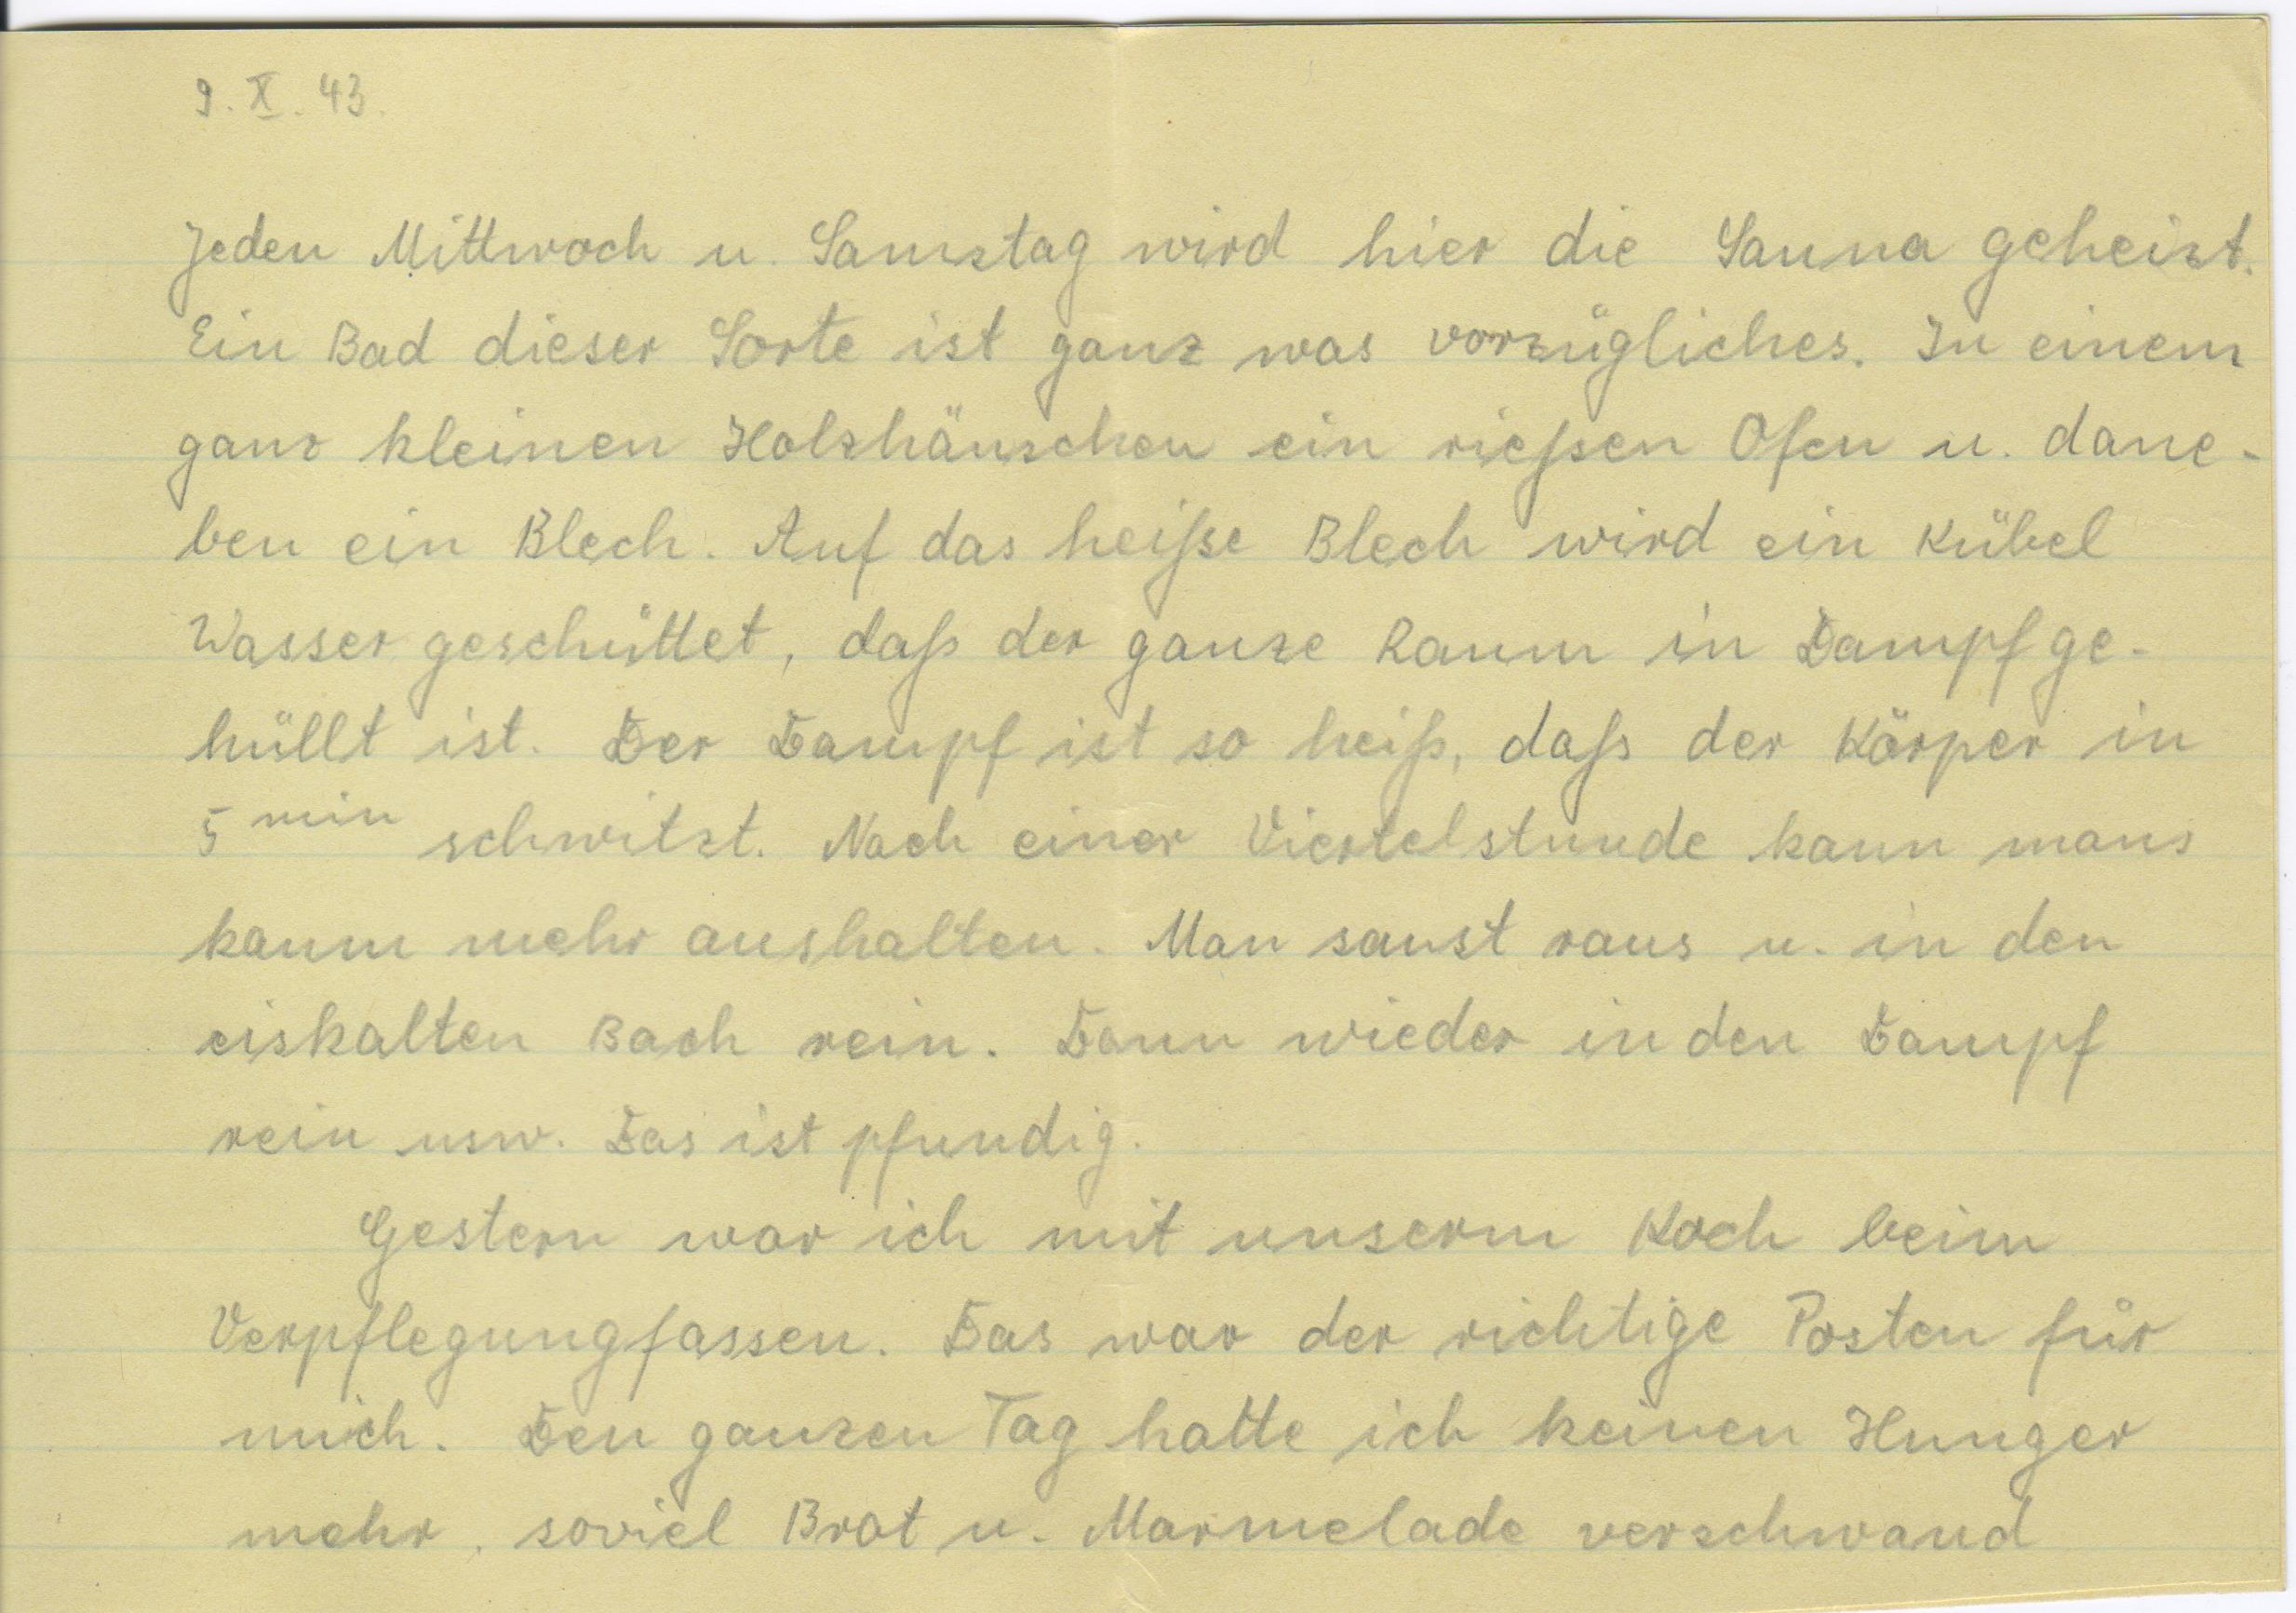 9. X. 43.
Jeden Mittwoch u. Samstag wird hier die Sauna geheizt.
Ein Bad dieser Sorte ist ganz was vorzügliches. In einem
ganz kleinen Holzhäuschen ein rießen Ofen u. dane-
ben ein Blech. Auf das heiße Blech wird ein Kübel
Wasser geschüttet, daß der ganze Raum in Dampf ge-
hüllt ist. Der Dampf ist so heiß, daß der Körper in
5 min schwitzt. Nach einer Viertelstunde kann mans
kaum mehr aushalten. Man saust raus u. in den
eiskalten Bach rein. Dann wieder in den Dampf
rein usw. Das ist pfundig.
Gestern war ich mit unserm Koch beim
Verpflegungfassen. Das war der richtige Posten für
mich. Den ganzen Tag hatte ich keinen Hunger
mehr, soviel Brot u. Marmelade verschwand